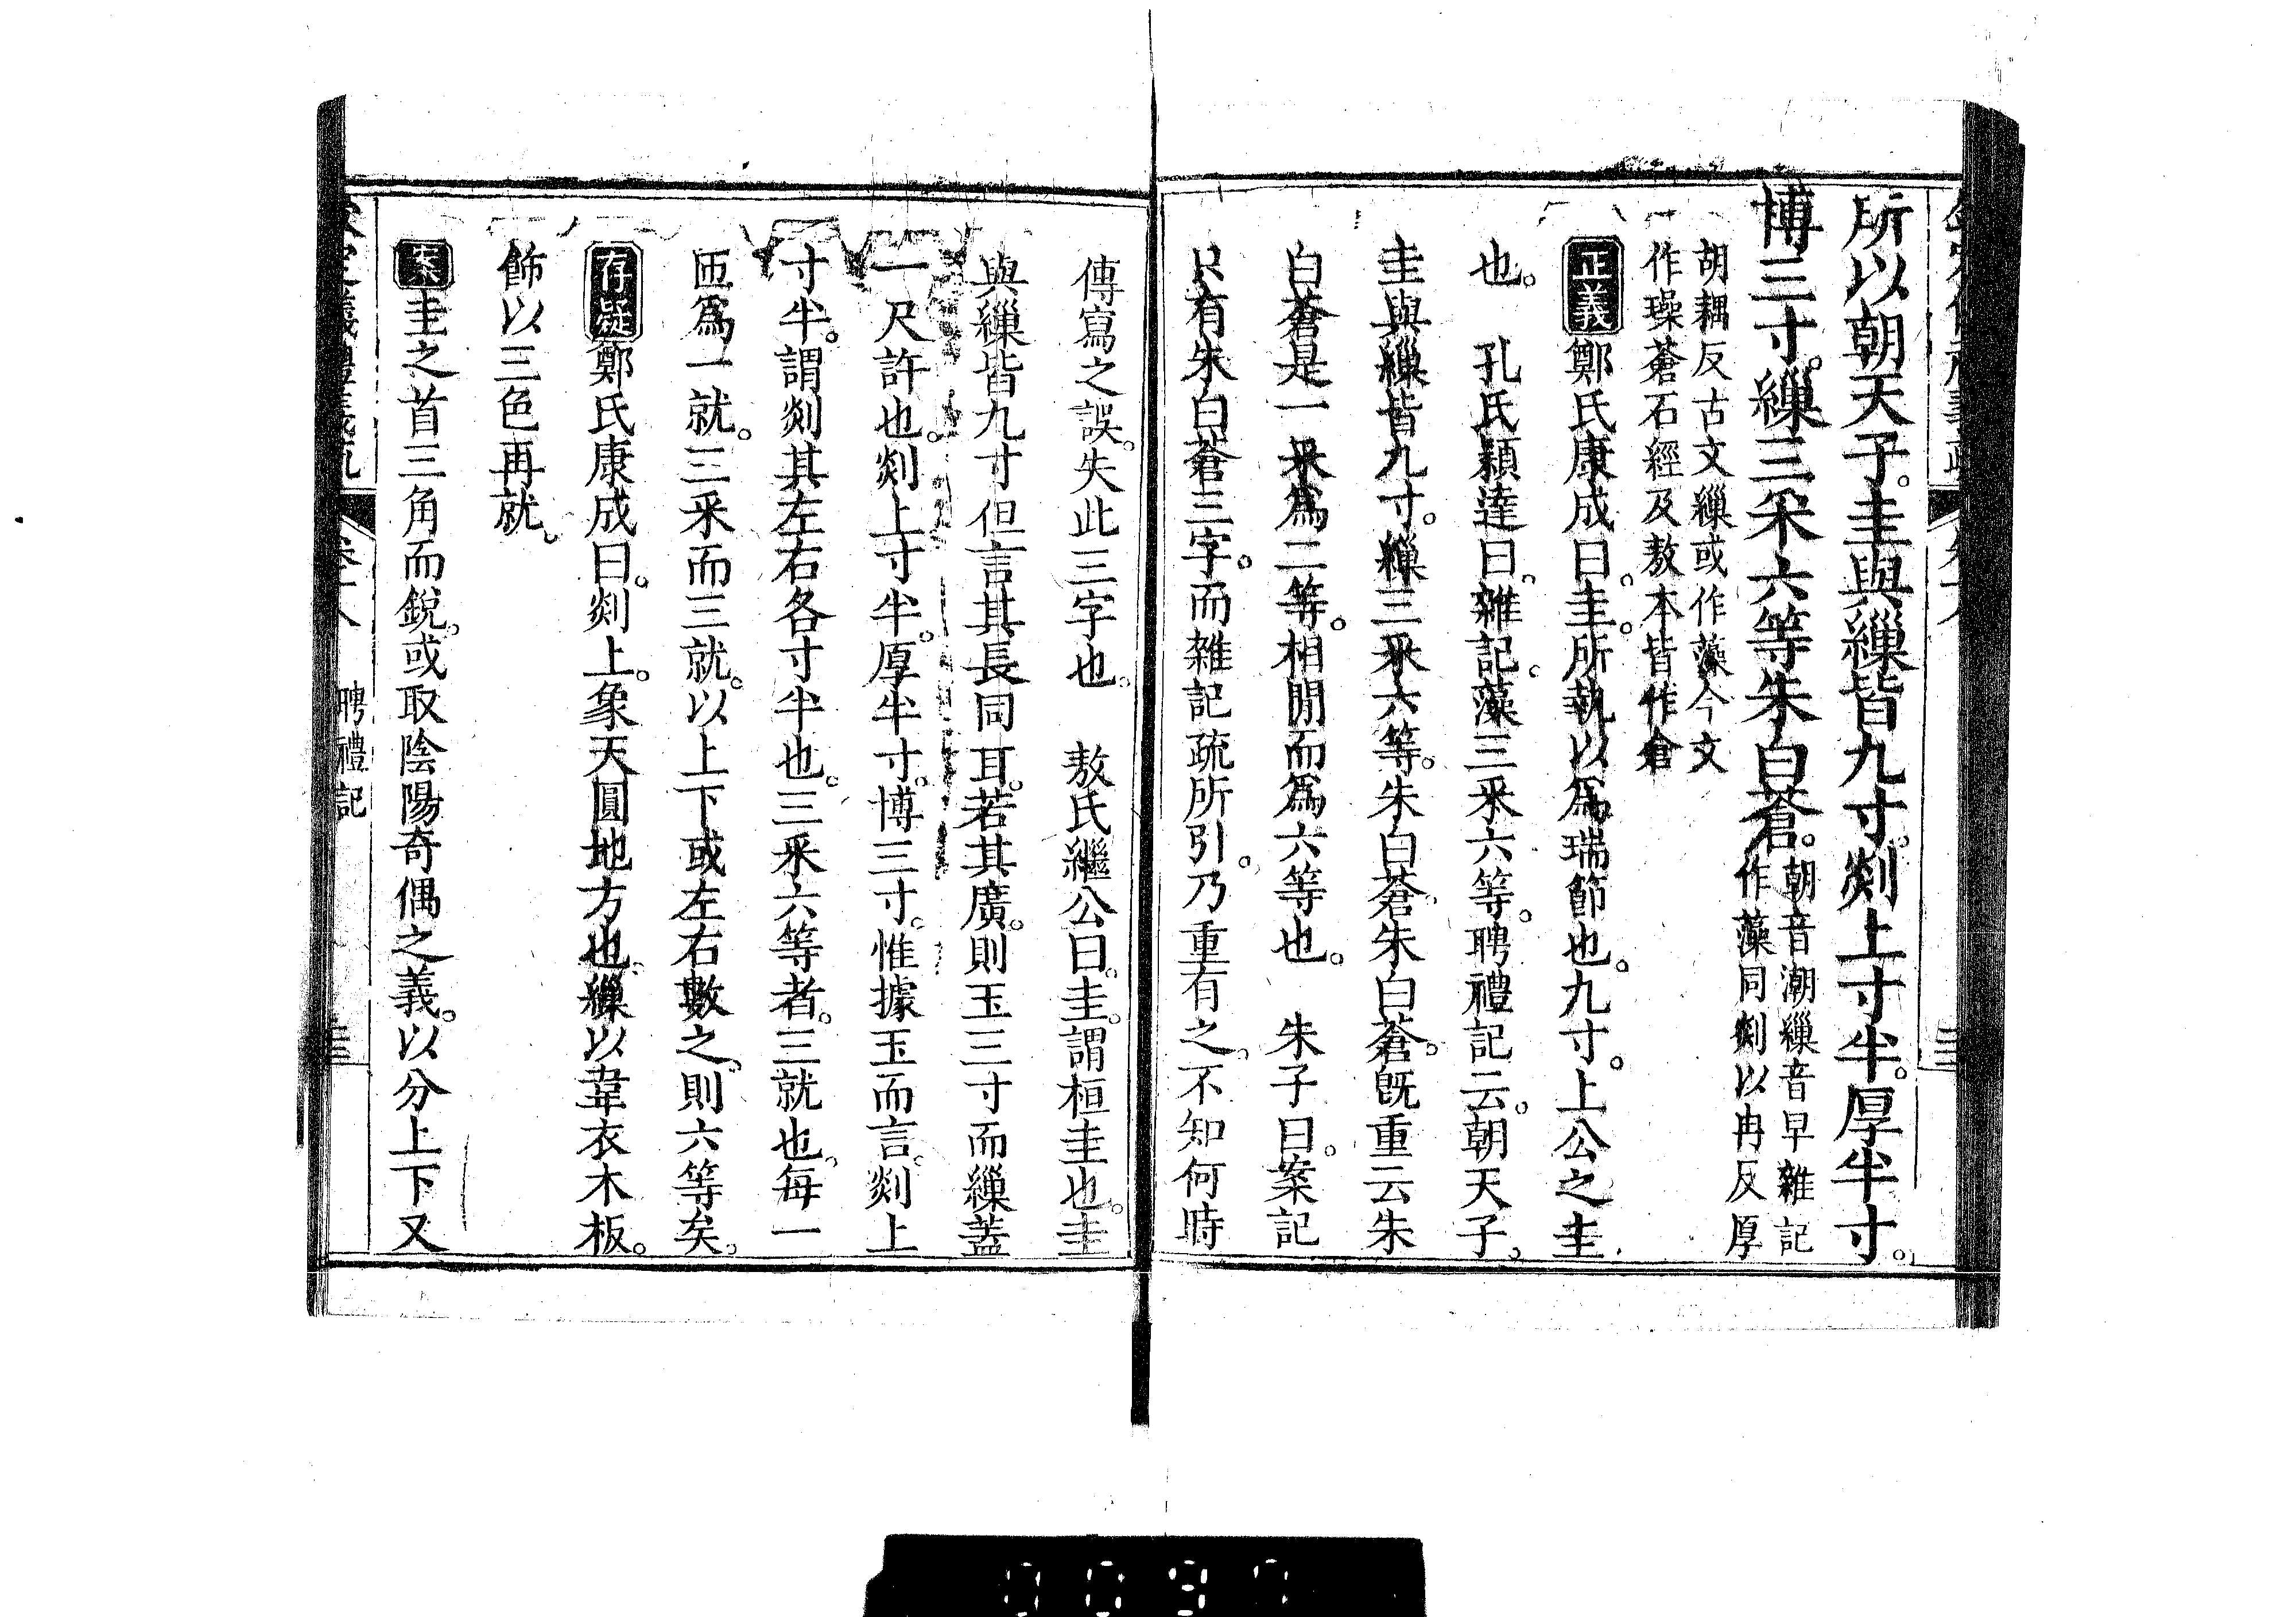 所以朝天子。圭與繅皆九寸。剡上寸半。厚半寸。
博三寸。繅三采六等朱白蒼。朝音潮繅音早雜記
作藻同剡以冉反厚
胡耦反古文繅或作藻今文
作璪蒼石經及敖本皆作倉
正義鄭氏康成曰。圭。所執以爲瑞節也。九寸。上公之圭
也。　孔氏穎達曰。雜記。藻三采六等。聘禮記云。朝天子。
圭與繅皆九寸。繅三采六等。朱白蒼。朱白蒼。旣重云朱
白蒼。是一采爲二等。相閒而爲六等也。　朱子曰。案記
只有朱白蒼三字。而雜記疏所引。乃重有之。不知何時
傳寫之誤。失此三字也。　敖氏繼公曰。圭。謂桓圭也。圭
與繅皆九寸。但言其長同耳。若其廣。則玉三寸而繅蓋
一尺許也。剡上寸半。厚半寸。博三寸。惟據玉而言。剡上
寸半。謂剡其左右各寸半也。三采六等者。三就也。每一
匝爲一就。三采而三就。以上下或左右數之。則六等矣。
存疑鄭氏康成曰。剡上。象天圓地方也。繅以韋衣木板。
飾以三色再就。
案圭之首三角而銳。或取陰陽奇偶之義。以分上下又
聘禮記